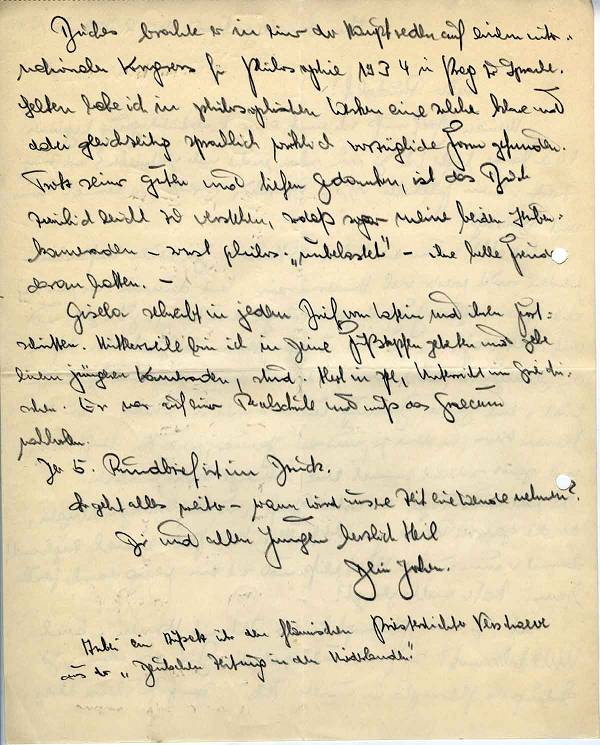 Buches brachte er in einer der Hauptreden auf einem inter-
nationalen Kongress für Philosophie 1934 in Prag zur Sprache.
Selten habe ich in philosophischen Werken eine solche klare und
dabei gleichzeitig sprachlich wirklich vorzügliche Form gefunden.
Trotz seiner guten und tiefen Gedanken, ist das Buch
ziemlich leicht zu verstehen, sodaß sogar meine beiden Stuben-
kameraden – sonst philos. „unbelastet" – ihre helle Freude
daran hatten. –
Gisela schreibt in jedem Brief vom Latein und ihren Fort-
schritten. Mittlerweile bin ich in Deine Fußstapfen getreten und gebe
einem jüngeren Kameraden, stud. Unterricht im Griechi-
schen. Er war auf einer Realschule und muß das Graecum
nachholen.
Der 5. Rundbrief ist im Druck.
So geht alles weiter – wann wird unsre Zeit eine Wende nehmen?
Dir und allen Jungen herzlich Heil
Dein Jochen.
Anbei ein Aufsatz über den flämischen Priesterdichter Verschaeve
aus der „Deutschen Zeitung in den Niederlanden."